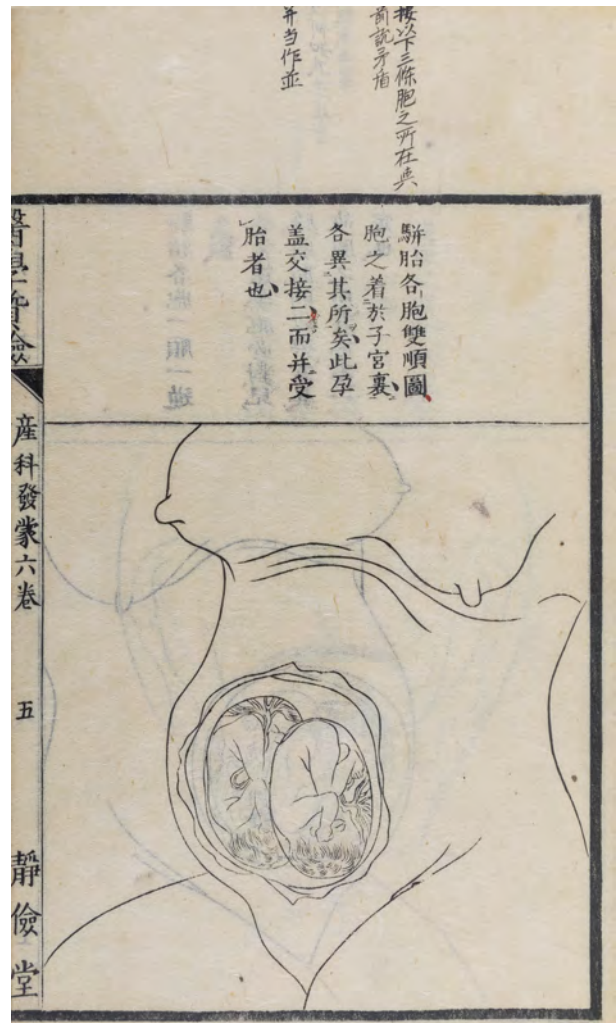 按以下三條胞之所在與
前說矛盾
并当作並
駢胎各胞雙順圖
胞之着於子宮裏
各異其所矣此孕
盖交接二而并受
胎者也
產科發蒙六卷
五
靜儉堂